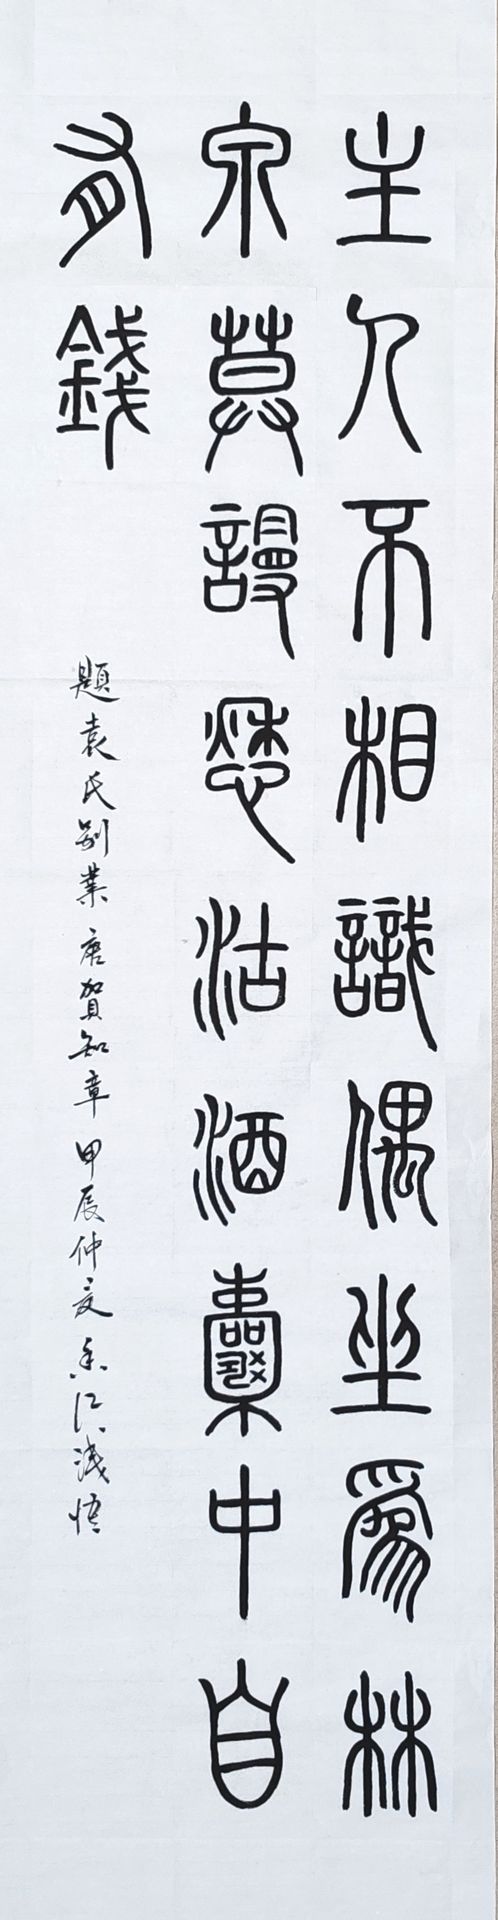 主人不相識偶坐為林
泉莫謾愁沽酒囊中自
有錢
題袁氏别業唐賀知章甲辰仲夏香江淺悟